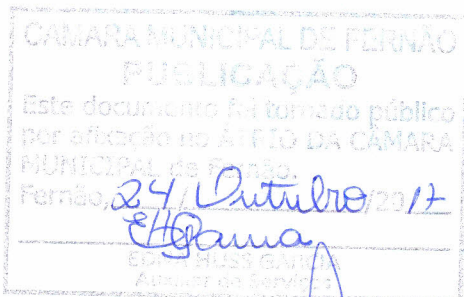 CÂMARA MUNICIPAL DE FERNÃO
PUBLICAÇÃO
Este documento foi tornado público
por afixação no ÁTRIO DA CÂMARA
MUNICIPAL de Fernão.
Fernão, 24 / Outubro /20 17
EHGama
Auxiliar de Serviços